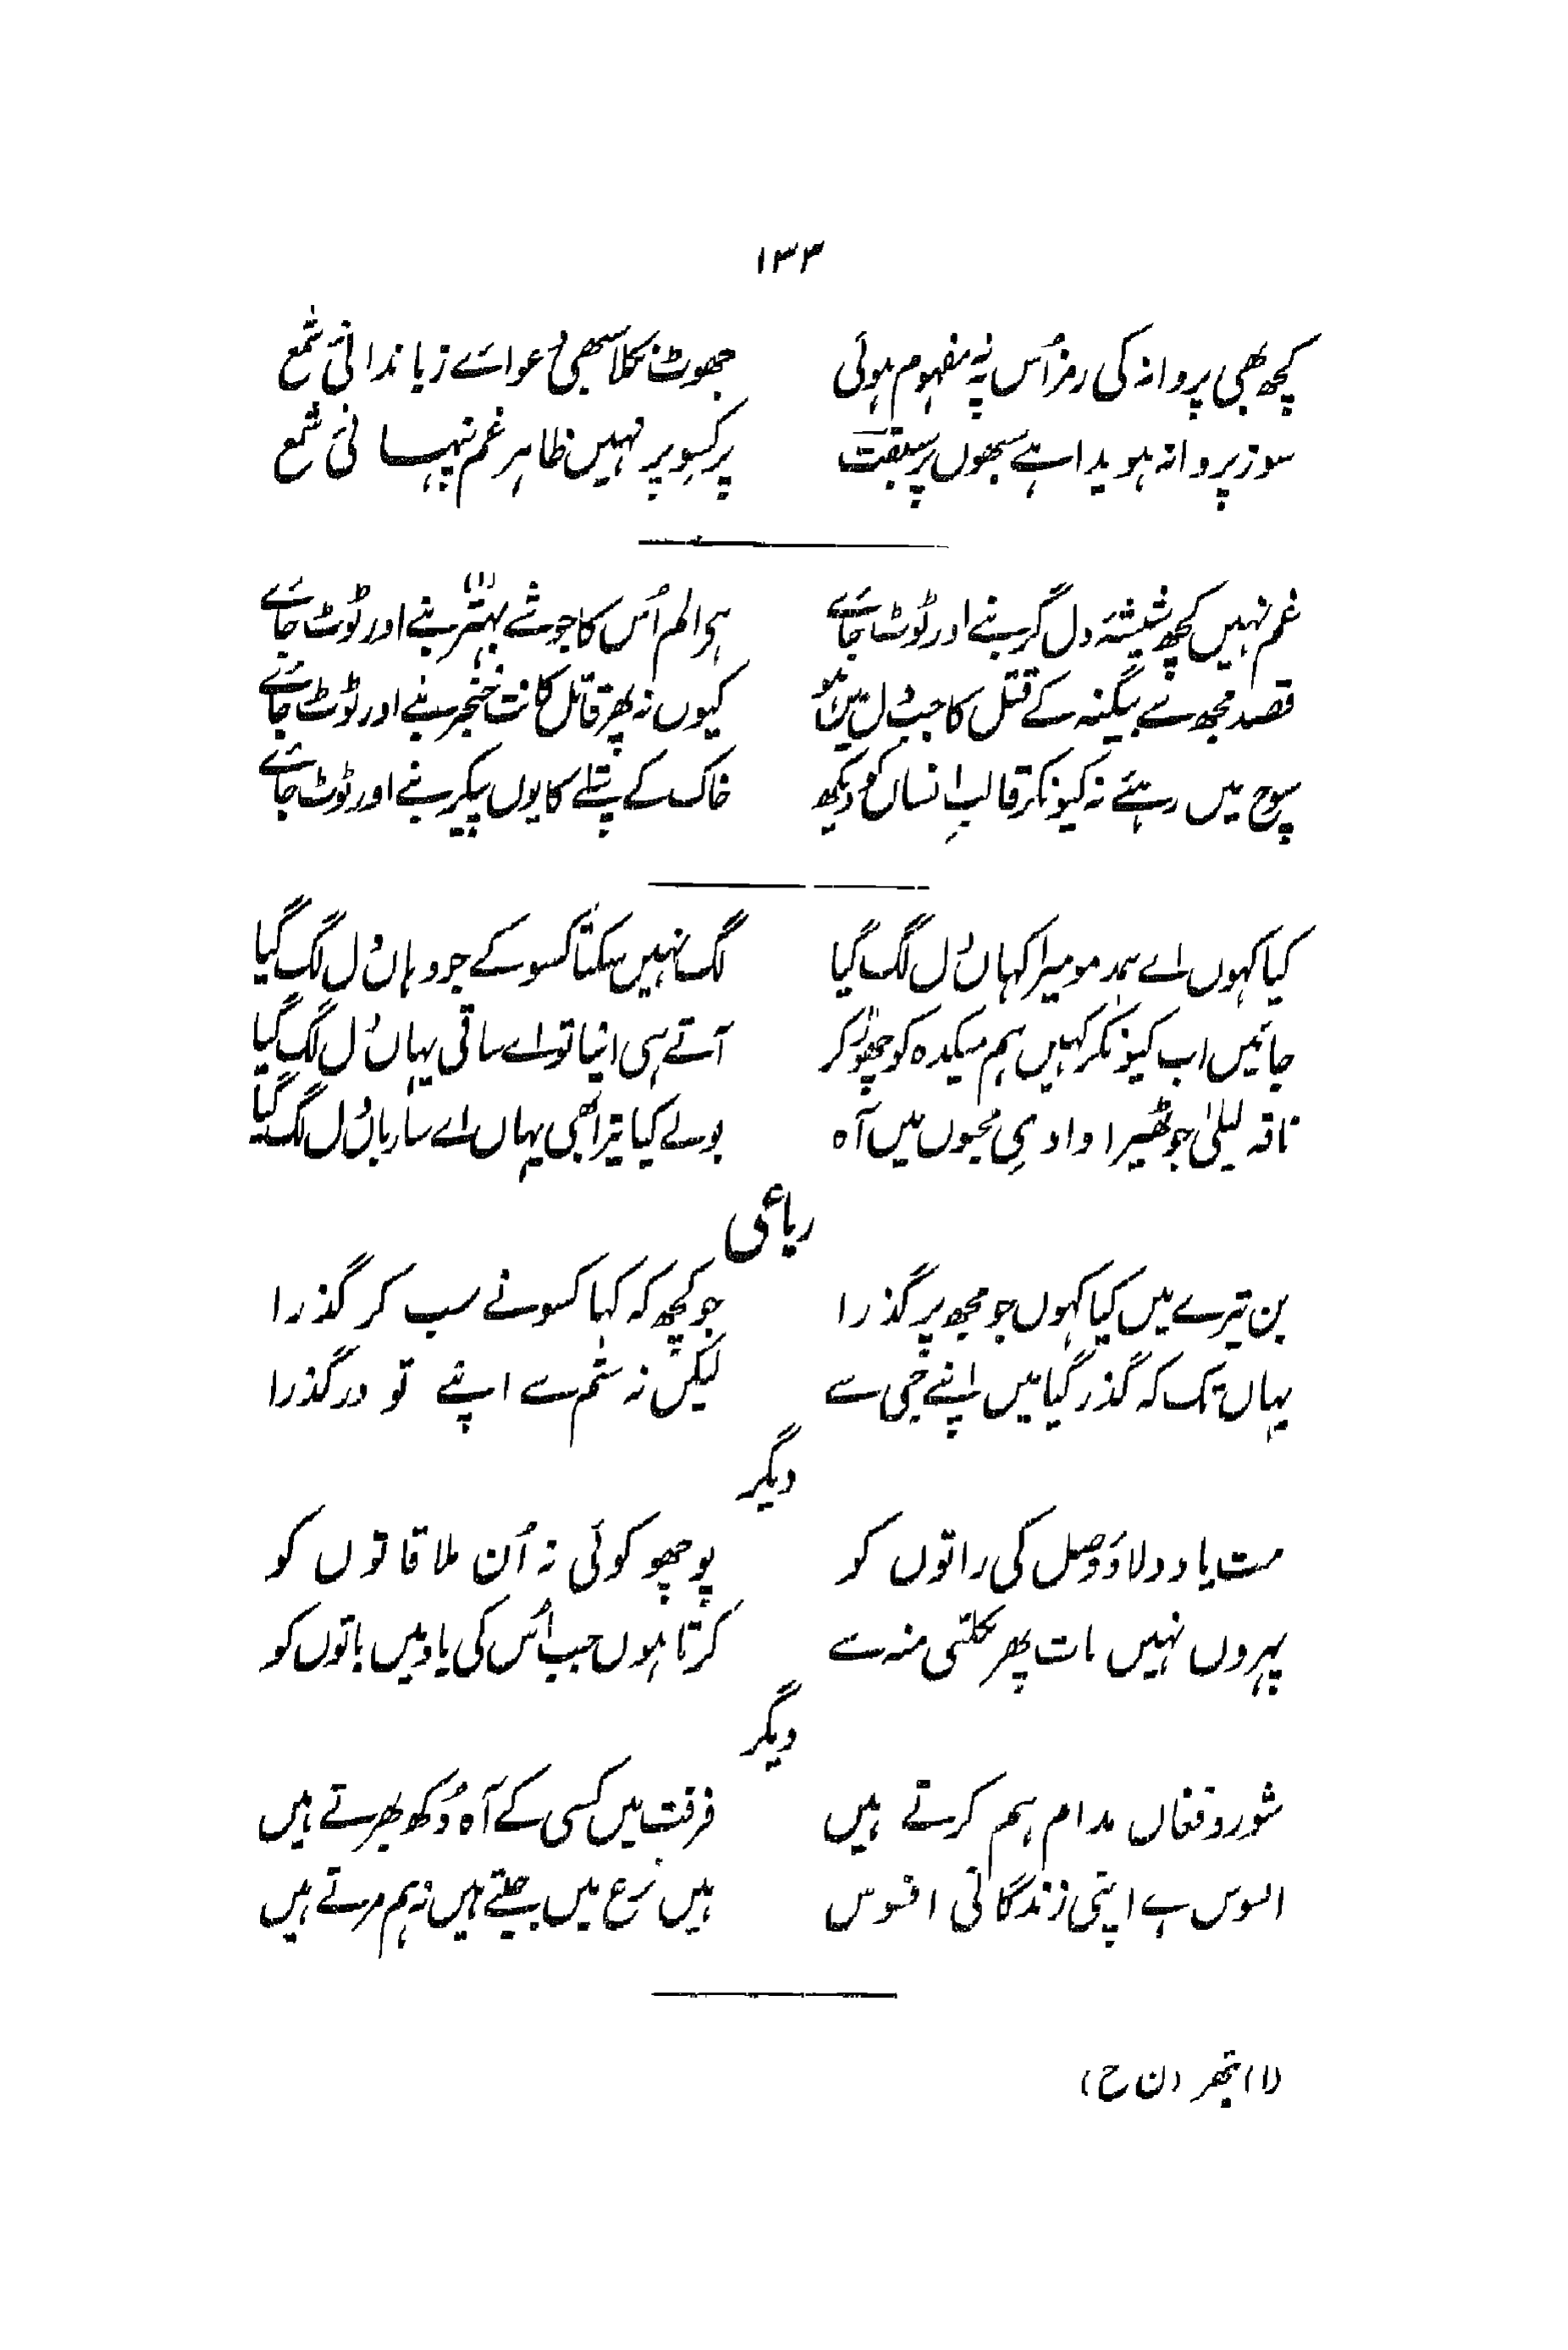 ۱۳۳
کچھ بھی پروانہ کی رمز اُس پہ نہ مفہوم ہوئی جھوٹ نکلا سبھی دعوائے زباندانیٔ شمع
سوز پروانہ ہویدا ہے سبھوں پر سبقت پر کسو پر نہیں ظاہر غم پنہانیٔ شمع
غم نہیں کچھ شیشۂ دل گر بنے اور ٹوٹ جائے ہی الم اُس کا جو شے بہتر (۱) بنے اور ٹوٹ جائے
قصد مجھ سے بیگنہ کے قتل کا جب دل میں ہو کیوں نہ پھر قاتل کا نت خنجر بنے اور ٹوٹ جائے
سوچ میں رہئے نہ کیونکر قالبِ انساں کو دیکھ خاک کے پتلے کا یوں پیکر بنے اور ٹوٹ جائے
کیا کہوں اے ہمدمو میرا کہاں دل لگ گیا لگ نہیں سکتا کسو کے جو وہاں دل لگ گیا
جائیں اب کیونکر کہیں ہم میکدہ کو چھوڑ کر آتے ہی اپنا تو اے ساقی یہاں دل لگ گیا
ناقہ لیلیٰ جو ٹھیرا وادیِ مجنوں میں آہ بولے کیا تیرا بھی یہاں اے سارباں دل لگ گیا
رباعی
بن تیرے میں کیا کہوں جو مجھ پر گذرا جو کچھ کہ کہا کسو نے سب کر گذرا
یہاں تک کہ گذر گیا میں اپنے جی سے لیکن نہ ستم سے اپنے تو درگذرا
دیگر
مت یاد دلاؤ وصل کی راتوں کو پوچھو کوئی نہ اُن ملاقاتوں کو
پہروں نہیں بات پھر نکلتی منہ سے کرتا ہوں جب اُس کی یاد میں باتوں کو
دیگر
شور و فغاں مدام ہم کرتے ہیں فرقت میں کسی کے آہ دُکھ بھرتے ہیں
افسوس ہے اپنی زندگانی افسوس ہیں نزع میں جیتے ہیں نہ ہم مرتے ہیں
(۱) پتھر (ن ح)